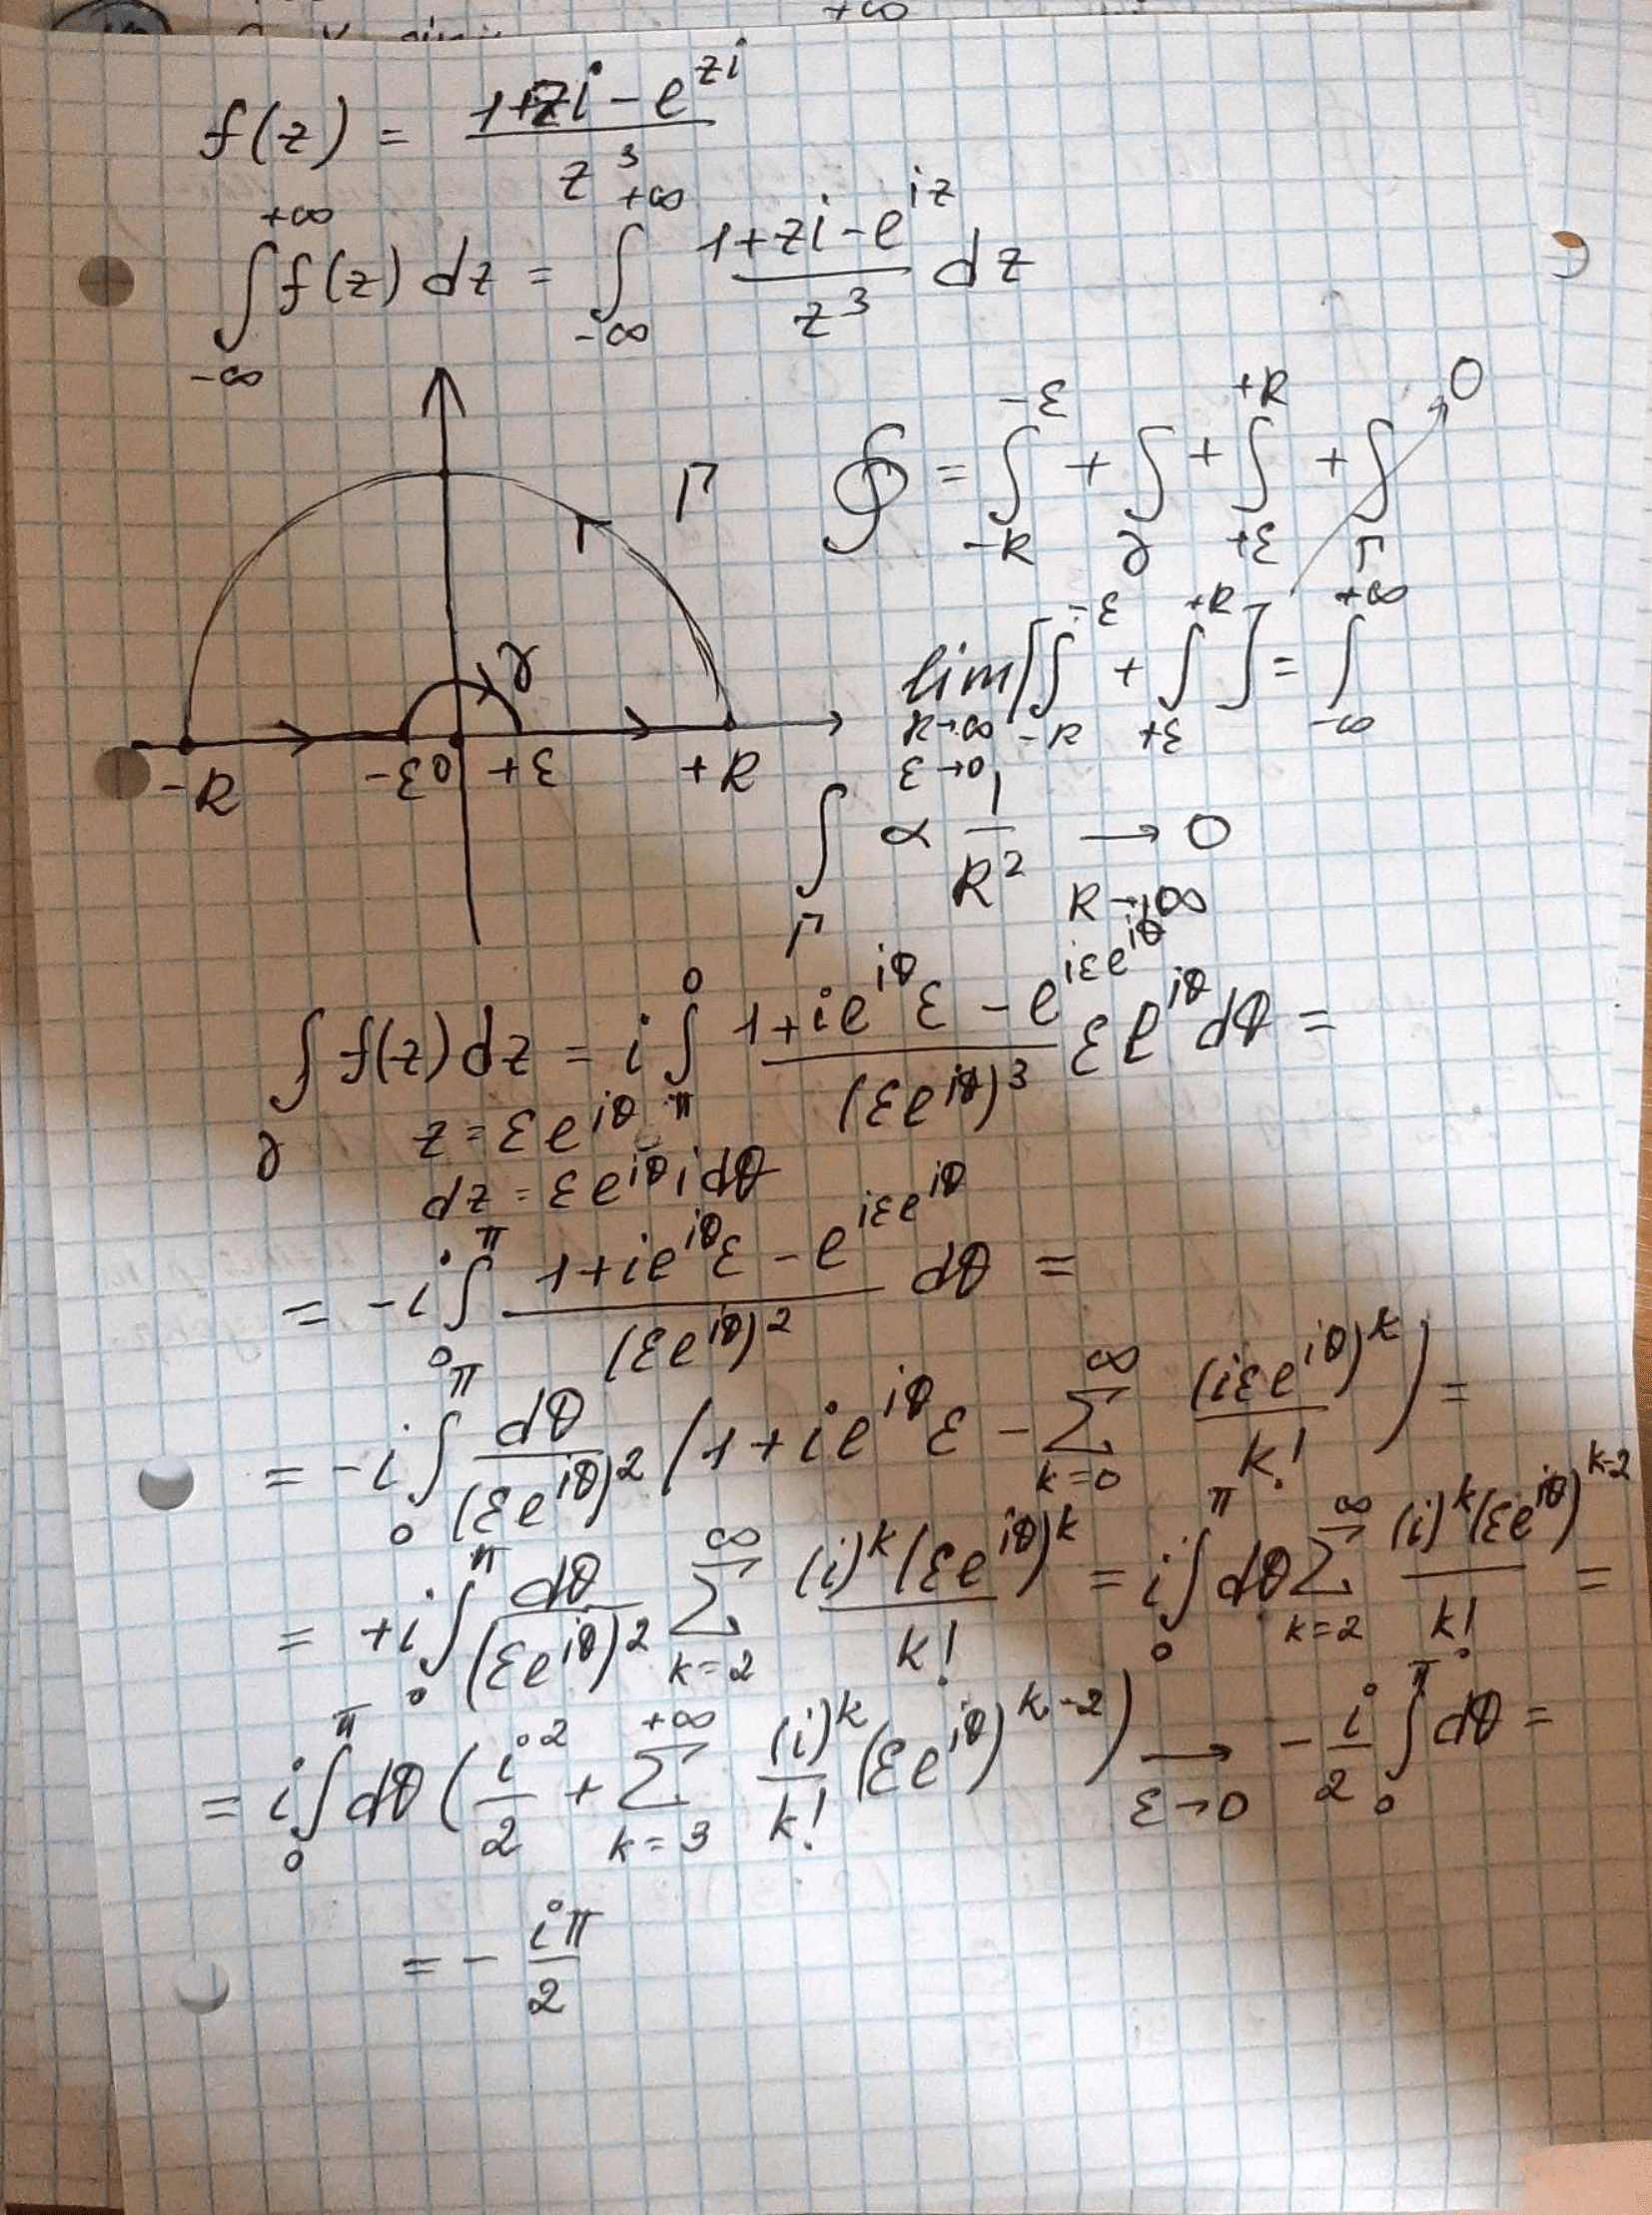 +∞
f(z) = (1+zi - e^{zi}) / z^3
∫_{-∞}^{+∞} f(z) dz = ∫_{-∞}^{+∞} (1+zi-e^{iz}) / z^3 dz
∮ = ∫_{-R}^{-ε} + ∫_γ + ∫_{+ε}^{+R} + ∫_Γ → 0
Γ
lim_{R→∞ ε→0} [∫_{-R}^{-ε} + ∫_{+ε}^{+R}] = ∫_{-∞}^{+∞}
γ
-R -ε 0 +ε +R
∫_Γ ∝ 1/R^2 → 0 R→+∞
∫_γ f(z) dz = i ∫_π^0 (1+ie^{iθ}ε - e^{iεe^{iθ}}) / (εe^{iθ})^3 εe^{iθ} dθ =
z = εe^{iθ}
dz = εe^{iθ} i dθ
= -i ∫_0^π (1+ie^{iθ}ε - e^{iεe^{iθ}}) / (εe^{iθ})^2 dθ =
= -i ∫_0^π dθ / (εe^{iθ})^2 (1+ie^{iθ}ε - Σ_{k=0}^∞ (iεe^{iθ})^k / k!) =
= +i ∫_0^π dθ / (εe^{iθ})^2 Σ_{k=2}^∞ (i)^k (εe^{iθ})^k / k! = i ∫_0^π dθ Σ_{k=2}^∞ (i)^k (εe^{iθ})^{k-2} / k! =
= i ∫_0^π dθ (i^2 / 2 + Σ_{k=3}^{+∞} (i)^k / k! (εe^{iθ})^{k-2}) →_{ε→0} - i/2 ∫_0^π dθ =
= - iπ / 2